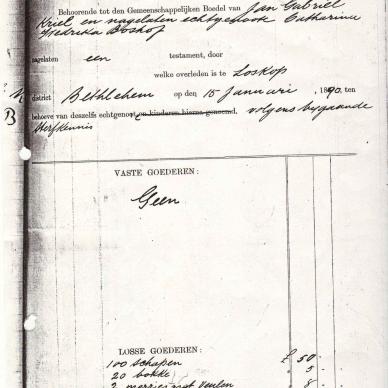 Behoorende tot den Gemeenschappelijken Boedel van Jan Gabriel
Kriel en nagelaten echtgenoote Catharina
Fredrika Boshof
nagelaten een testament, door
welke overleden is te Loskop
district Bethlehem op den 15 Januari , 1890. ten
B behoeve van deszelfs echtgenoot en kinderen hierna genoemd. volgens bygaande
sterfkennis
VASTE GOEDEREN:
Geen
LOSSE GOEDEREN:
100 schapen £ 50 -
20 bokke " 5 -
2 merries met veulen 8 -